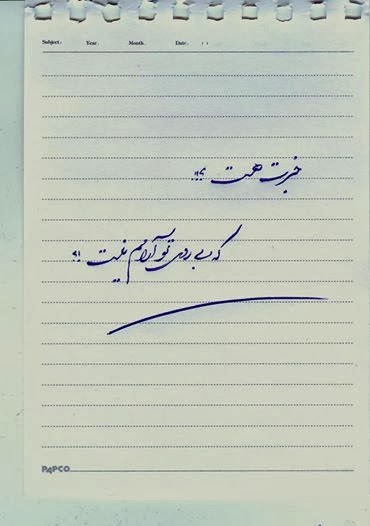 Subject: Year. Month. Date. / /
خبرت هست ؟!!
که بی روی تو آرامم نیست ؟!
PAPCO